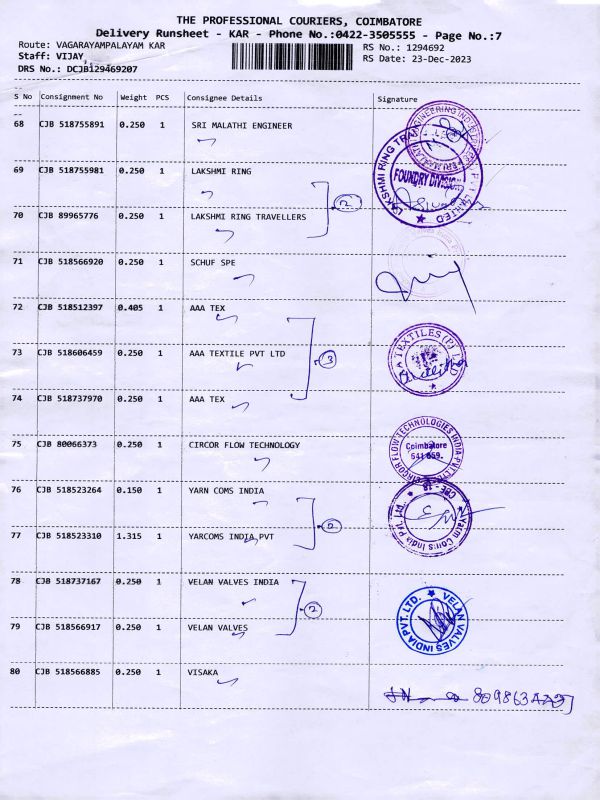 THE PROFESSIONAL COURIERS, COIMBATORE
Delivery Runsheet - KAR - Phone No.:0422-3505555 - Page No.:7
Route: VAGARAYAMPALAYAM KAR
RS No.: 1294692
Staff: VIJAY,
RS Date: 23-Dec-2023
DRS No.: DCJB129469207
S No Consignment No Weight PCS Consignee Details Signature
68 CJB 518755891 0.250 1 SRI MALATHI ENGINEER
69 CJB 518755981 0.250 1 LAKSHMI RING
LAKSHMI RING
FOUNDRY DIVISION
70 CJB 89965776 0.250 1 LAKSHMI RING TRAVELLERS
2
71 CJB 518566920 0.250 1 SCHUF SPE
72 CJB 518512397 0.405 1 AAA TEX
73 CJB 518606459 0.250 1 AAA TEXTILE PVT LTD
3
TEXTILES (P) LTD
74 CJB 518737970 0.250 1 AAA TEX
75 CJB 80066373 0.250 1 CIRCOR FLOW TECHNOLOGY
CIRCOR FLOW TECHNOLOGIES INDIA PVT. LTD
Coimbatore
641 659.
76 CJB 518523264 0.150 1 YARN COMS INDIA
77 CJB 518523310 1.315 1 YARCOMS INDIA PVT
2
India Pvt. Ltd.
CBE - 18
78 CJB 518737167 0.250 1 VELAN VALVES INDIA
2
VELAN VALVES INDIA PVT. LTD.
79 CJB 518566917 0.250 1 VELAN VALVES
80 CJB 518566885 0.250 1 VISAKA